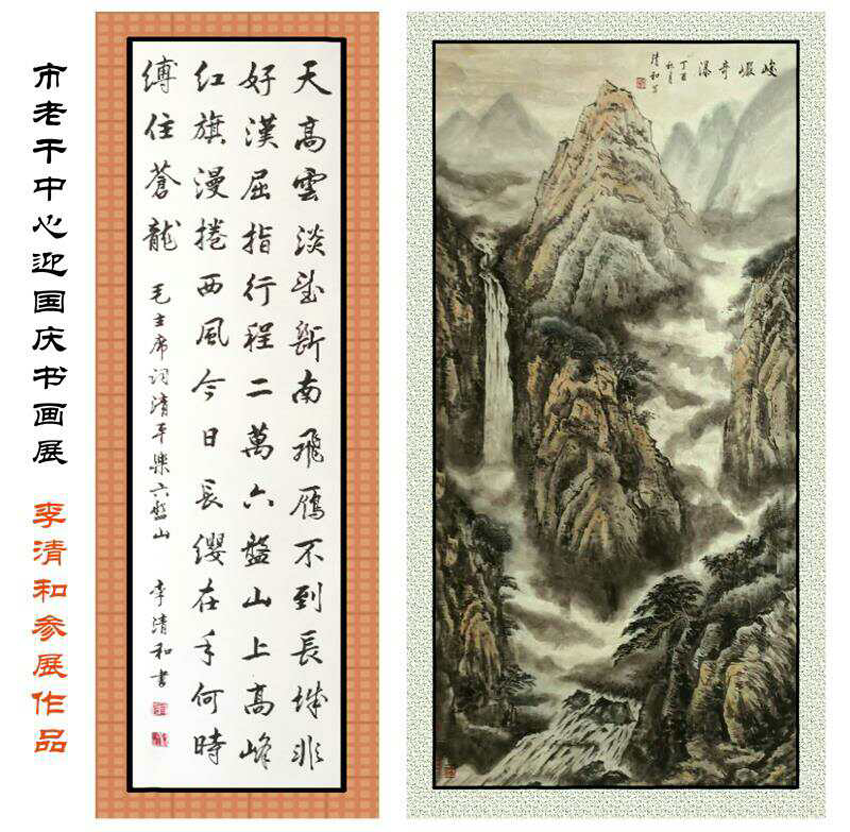 市老干中心迎国庆书画展 李清和参展作品
天高雲淡望斷南飛雁不到長城非
好漢屈指行程二萬六盤山上高峰
红旗漫捲西風今日長纓在手何時
縛住蒼龍 毛主席词清平樂六盤山 李清和書
峻巖奇瀑
丁酉
秋月
清和写